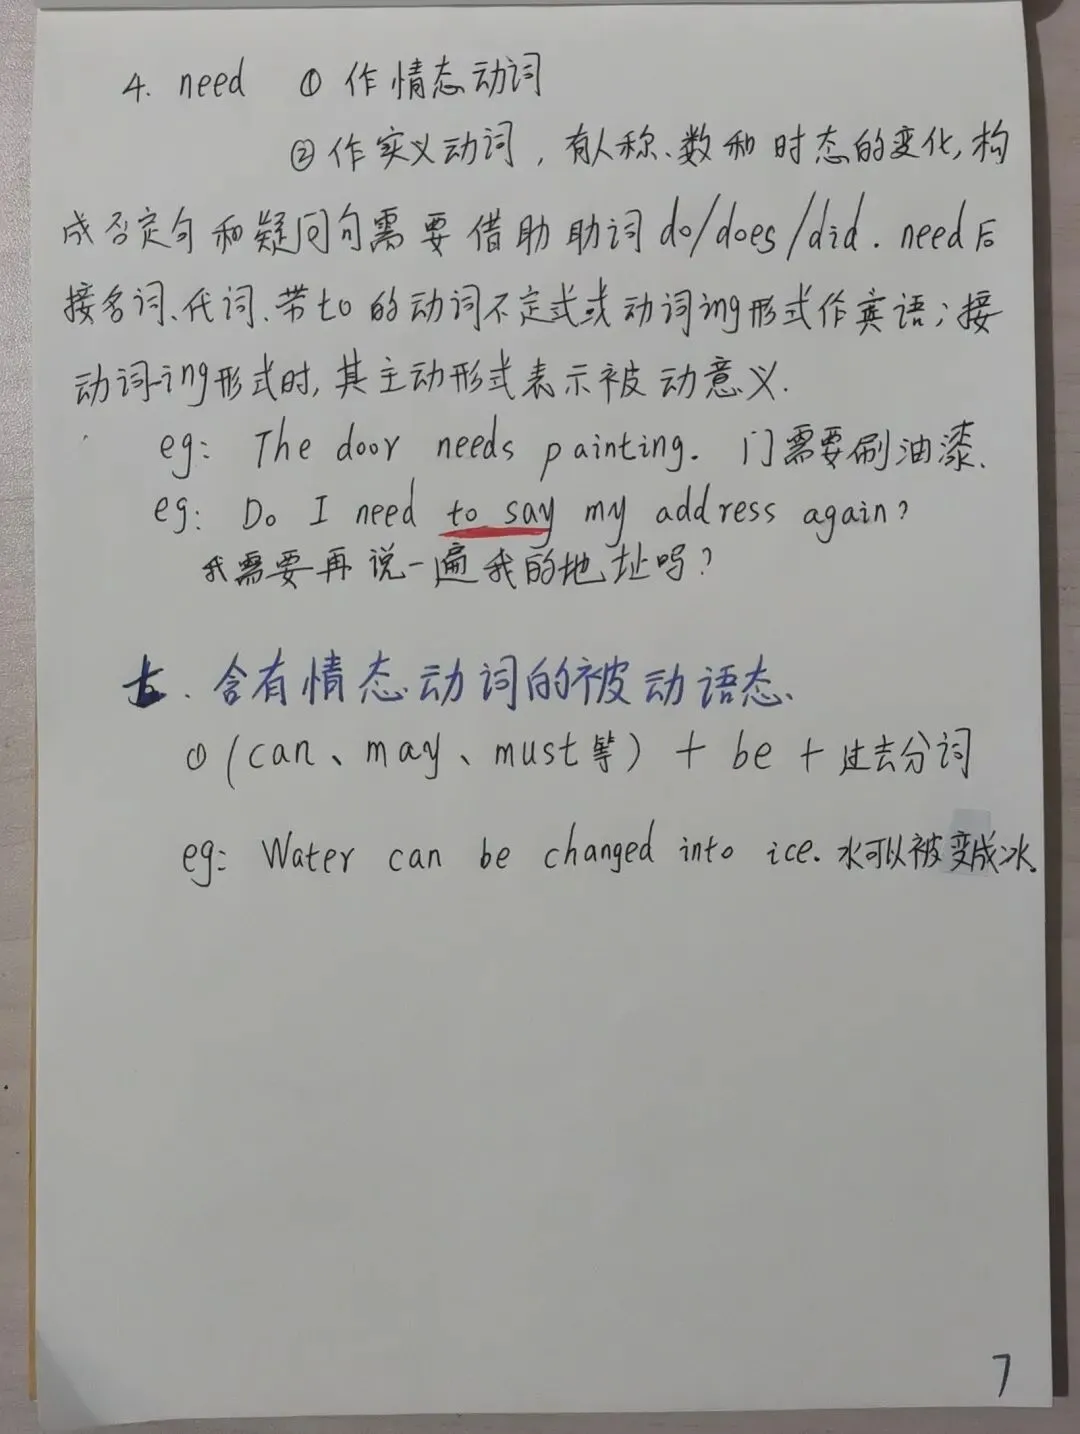 4. need ① 作情态动词
② 作实义动词，有人称、数和时态的变化,构
成否定句和疑问句需要借助助词do/does/did. need后
接名词、代词、带to的动词不定式或动词ing形式作宾语；接
动词-ing形式时,其主动形式表示被动意义.
eg: The door needs painting. 门需要刷油漆.
eg: Do I need to say my address again?
我需要再说一遍我的地址吗？
七. 含有情态动词的被动语态.
① (can、may、must等) + be + 过去分词
eg: Water can be changed into ice. 水可以被变成冰.
7